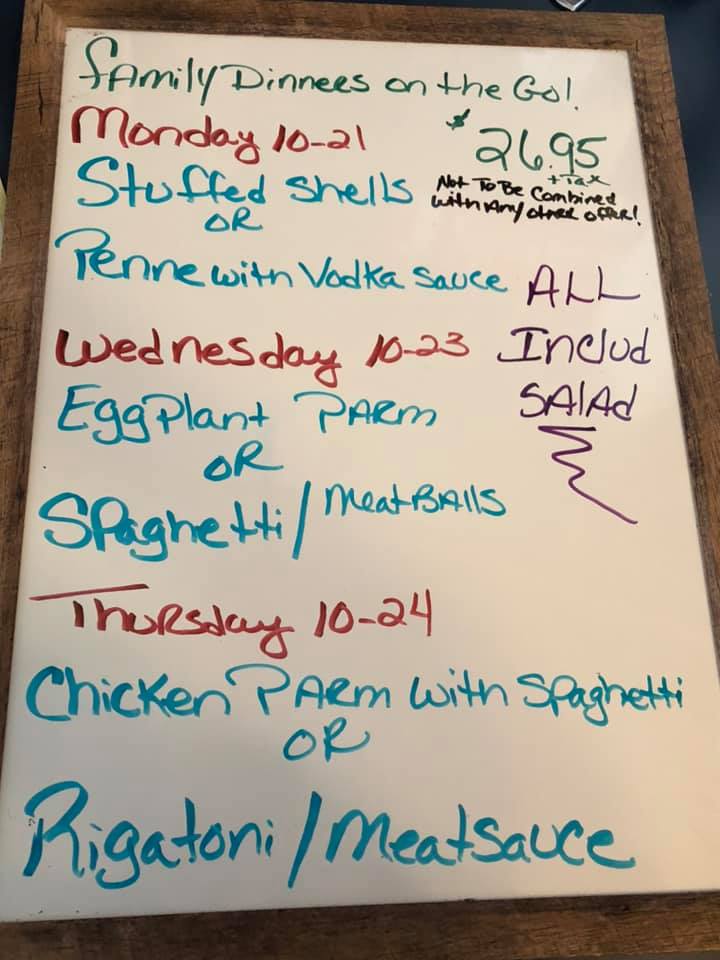 Family Dinners on the Go!
Monday 10-21
$26.95
+ Tax
Not To Be Combined
with Any other offer!
Stuffed Shells
OR
Penne with Vodka Sauce
ALL
Includ
SALAd
Wednesday 10-23
EggPlant PARM
OR
Spaghetti/MeatBAlls
Thursday 10-24
Chicken PARM with Spaghetti
OR
Rigatoni/Meatsauce